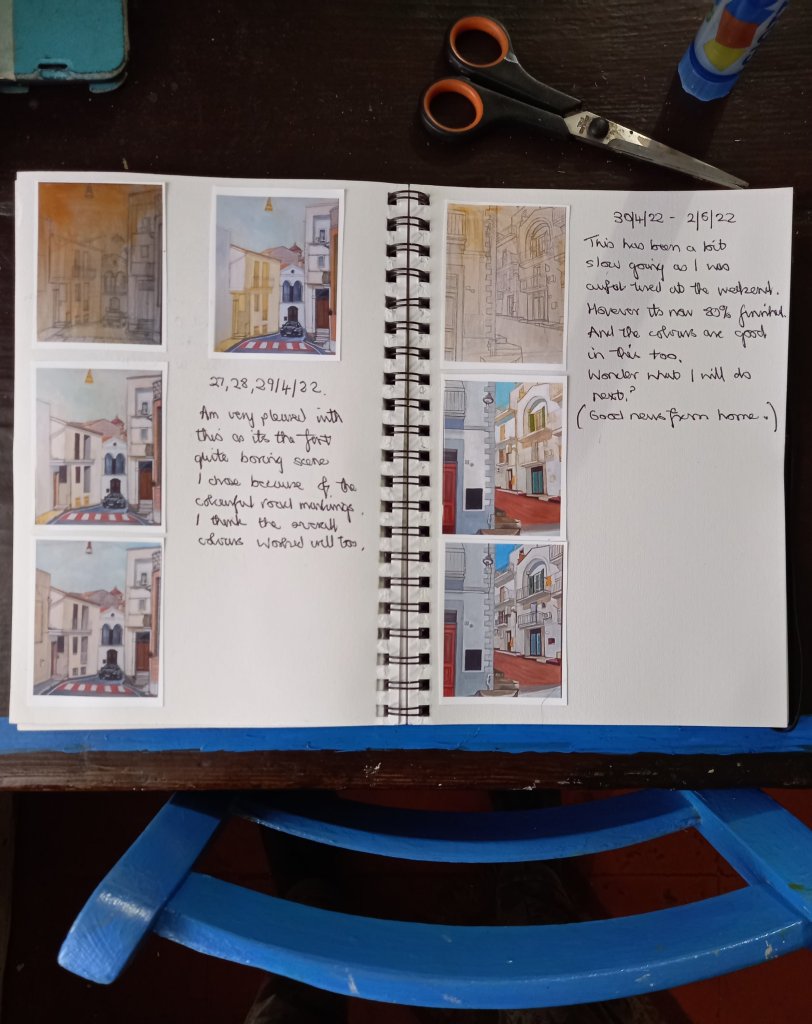 27,28,29/4/22.
Am very pleased with
this as its the first
quite boring scene
I chose because of the
colourful road markings.
I think the overall
colours worked well too.
30/4/22 - 2/5/22
This has been a bit
slow going as I was
awful tired at the weekend.
However its now 80% finished.
And the colours are good
in this too.
Wonder what I will do
next?
(Good news from home.)